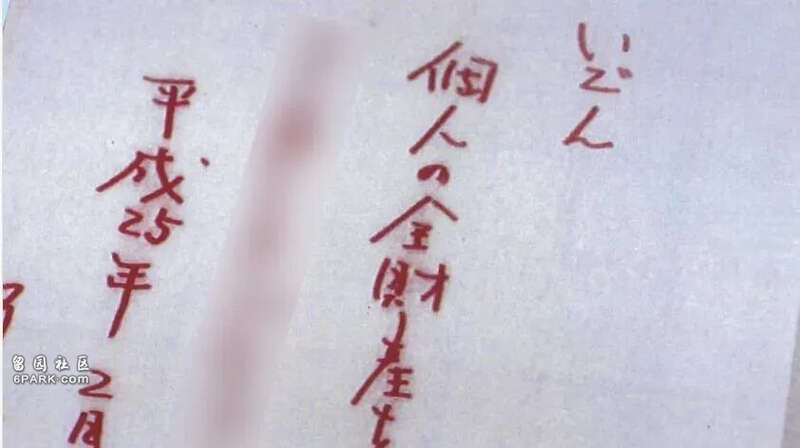 いごん
個人の全財産を
平成25年2月
留园社区
6PARK.com